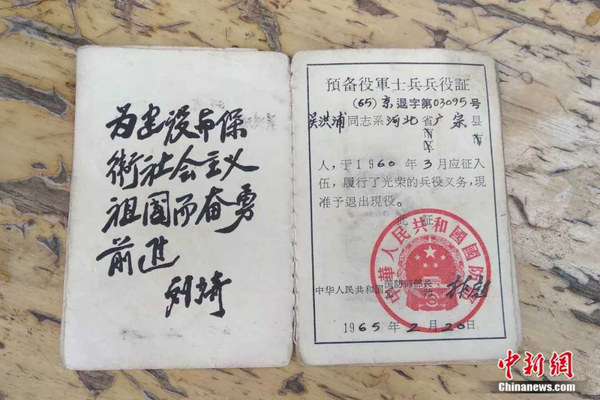 为建设和保
衛社会主义
祖國而奋勇
前进
预备役軍士兵兵役証
(65)京退字第03095号
吴洪浦同志系河北省广宗县
人,于1960年3月应征入
伍,履行了光荣的兵役义务,現
准予退出現役。
中华人民共和国國防部
中华人民共和国国防部部长
1965年2月20日
中新網
Chinanews.com